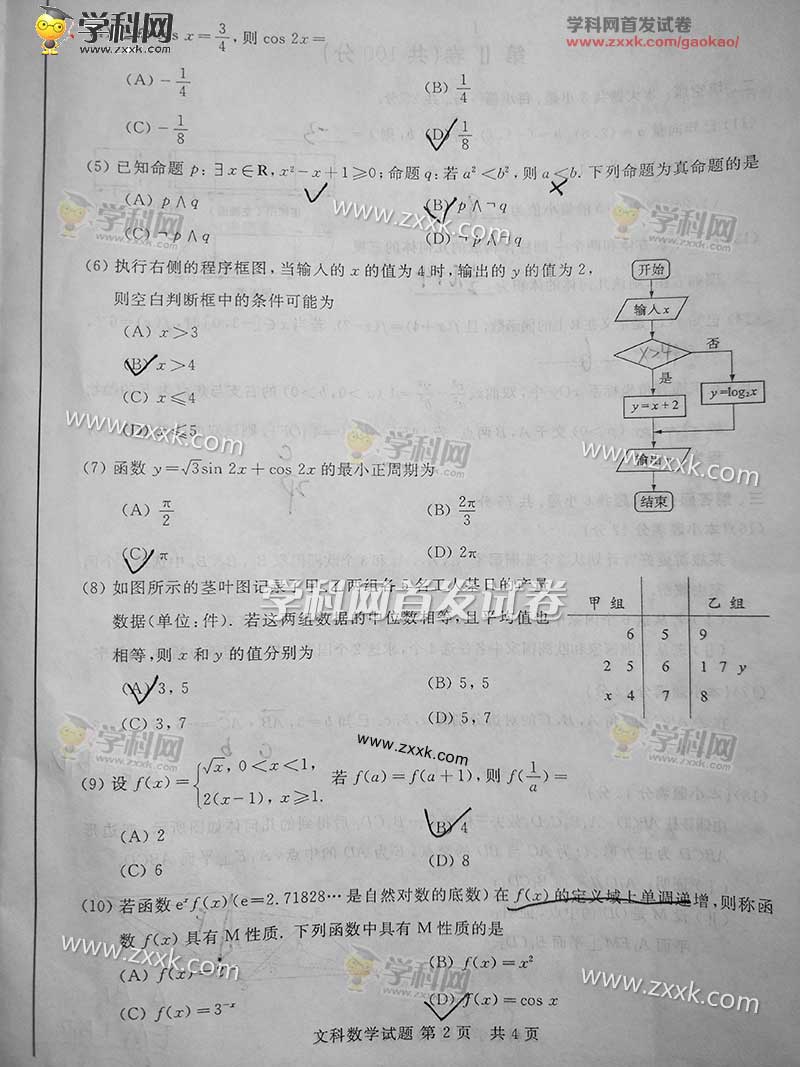 学科网
www.zxxk.com
学科网首发试卷
www.zxxk.com/gaokao/
s x=3/4,则 cos 2x=
(A) -1/4
(B) 1/4
(C) -1/8
(D) 1/8
(5) 已知命题 p: ∃x∈R, x²-x+1≥0;命题 q:若 a²<b²,则 a<b. 下列命题为真命题的是
(A) p∧q
(B) p∧¬q
(C) ¬p∧q
(D) ¬p∧¬q
(6) 执行右侧的程序框图,当输入的 x 的值为 4 时,输出的 y 的值为 2,
则空白判断框中的条件可能为
(A) x>3
(B) x>4
(C) x≤4
(D) x≤5
开始
输入 x
x>4
否
是
y=x+2
y=log₂x
输出
结束
(7) 函数 y=√3sin 2x+cos 2x 的最小正周期为
(A) π/2
(B) 2π/3
(C) π
(D) 2π
(8) 如图所示的茎叶图记录了甲、乙两组各 5 名工人某日的产量
数据(单位:件). 若这两组数据的中位数相等,且平均值也
相等,则 x 和 y 的值分别为
甲 组 乙 组
6 5 9
2 5 6 1 7 y
x 4 7 8
(A) 3, 5
(B) 5, 5
(C) 3, 7
(D) 5, 7
(9) 设 f(x)={√x, 0<x<1, 2(x-1), x≥1. 若 f(a)=f(a+1),则 f(1/a)=
(A) 2
(B) 4
(C) 6
(D) 8
(10) 若函数 eˣf(x)(e=2.71828…是自然对数的底数)在 f(x)的定义域上单调递增,则称函
数 f(x) 具有 M 性质. 下列函数中具有 M 性质的是
(A) f(x)=
(B) f(x)=x²
(C) f(x)=3⁻ˣ
(D) f(x)=cos x
文科数学试题 第 2 页 共 4 页